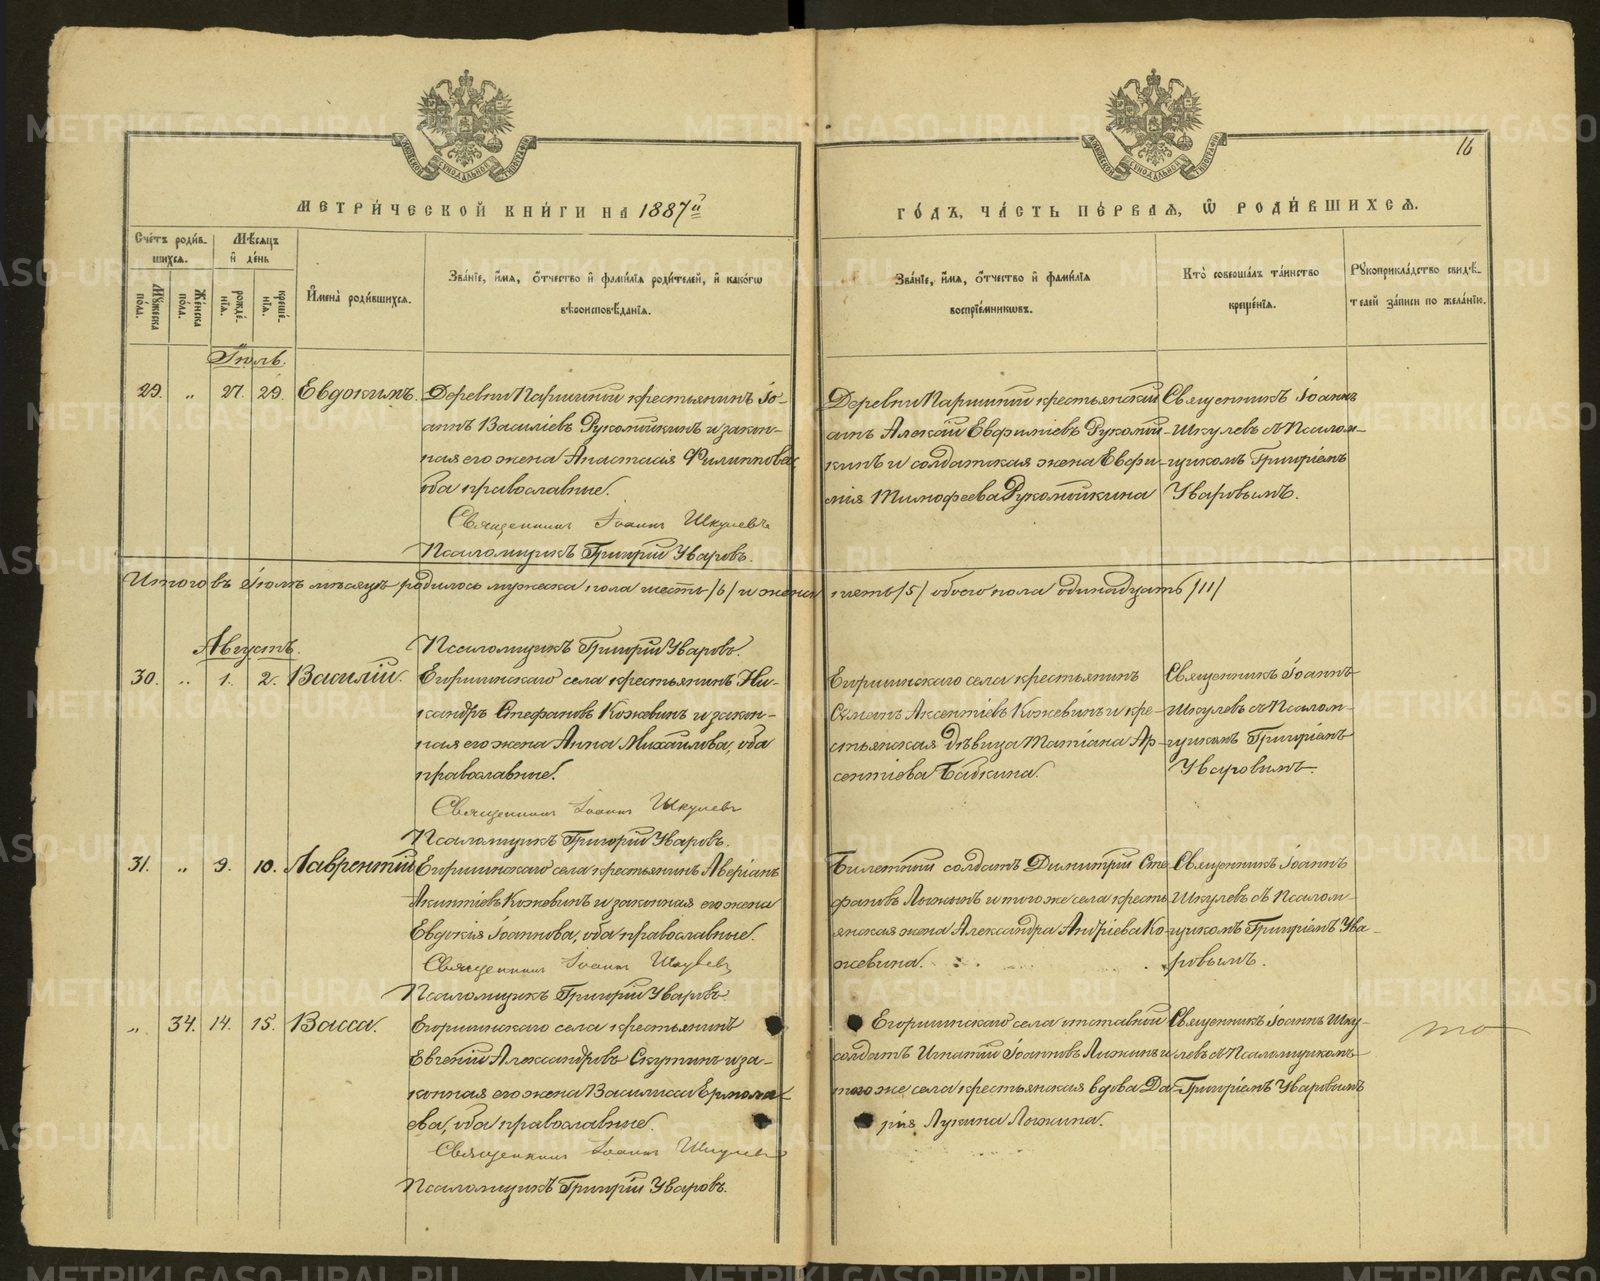 МЕТРИ́ЧЕСКОЙ КНИ́ГИ НА 1887й
ГО́ДЪ, ЧА́СТЬ ПЕ́РВАЯ, Ѡ РОДИ́ВШИХСЯ.
16
Сче́тъ роди́вшихся.
Мѣ́сяцъ и҆ де́нь
И҆мена̀ роди́вшихся.
Зва́нїе, и҆́мя, ѻ҆́тчество и҆ фами́лїя роди́телей, и҆ како́гѡ
вѣроисповѣ́данїя.
Зва́нїе, и҆́мя, ѻ҆́тчество и҆ фами́лїя
воспрїе́мникѡвъ.
Кто̀ соверша́лъ та́инство
креще́нїя.
Рꙋкоприкла́дство свидѣ́-
телей за́писи по жела́нїю.
Мꙋжеска по́ла.
Же́нска по́ла.
рожде́нїя.
креще́нїя.
Іюль.
29. „ 27. 29. Евдокимъ.
Деревни Паршиной крестьянинъ Іо-
аннъ Василіевъ Рукомойкинъ и закон-
ная его жена Анастасія Филиппова
оба православные.
Священникъ Іоаннъ Шкулевъ
Псаломщикъ Григорій Уваровъ.
Деревни Паршиной крестьянскій
Алексій Евфиміевъ Рукомой-
кинъ и солдатская жена Евфи-
мія Тимофеева Рукомойкина
Священникъ Іоаннъ
Шкулевъ съ Псалом-
щикомъ Григоріемъ
Уваровымъ.
Итого въ Іюлѣ мѣсяцѣ родилось мужеска пола шесть /6/ и женска пять /5/ обоего пола одинадцать /11/
Псаломщикъ Григорій Уваровъ.
Августъ.
30. „ 1. 2. Василій.
Егоршинскаго села крестьянинъ Ни-
кандръ Стефановъ Кожевинъ и закон-
ная его жена Анна Михаилова, оба
православные.
Священникъ Іоаннъ Шкулевъ
Псаломщикъ Григорій Уваровъ.
Егоршинскаго села крестьянинъ
Аксентіевъ Кожевинъ и кре-
стьянская дѣвица Матіана Ар-
сентіева Бабкина.
Священникъ Іоаннъ
Шкулевъ съ Псалом-
щикомъ Григоріемъ
Уваровымъ.
31. „ 9. 10. Лаврентій
Егоршинскаго села крестьянинъ Аверіанъ
Акинтіевъ Кожевинъ и законная его жена
Евдокія Іоаннова, оба православные.
Священникъ Іоаннъ Шкулевъ
Псаломщикъ Григорій Уваровъ
Билетный солдатъ Димитрій Сте-
фановъ Ложкинъ и того же села кресть-
янская жена Александра Андріева Ко-
жевина.
Священникъ Іоаннъ
Шкулевъ съ Псалом-
щикомъ Григоріемъ Ува-
ровымъ.
„ 34. 14. 15. Васса.
Егоршинскаго села крестьянинъ
Евгеній Александровъ Скутинъ и за-
конная его жена Василиса Ермола-
ева, оба православные.
Священникъ Іоаннъ Шкулевъ
Псаломщикъ Григорій Уваровъ.
Егоршинскаго села отставной
солдатъ Игнатій Іоанновъ и
того же села крестьянская вдова Да-
рія Лукина Ложкина.
Священникъ Іоаннъ Шку-
левъ съ Псаломщикомъ
Григоріемъ Уваровымъ
METRIKI.GASO-URAL.RU